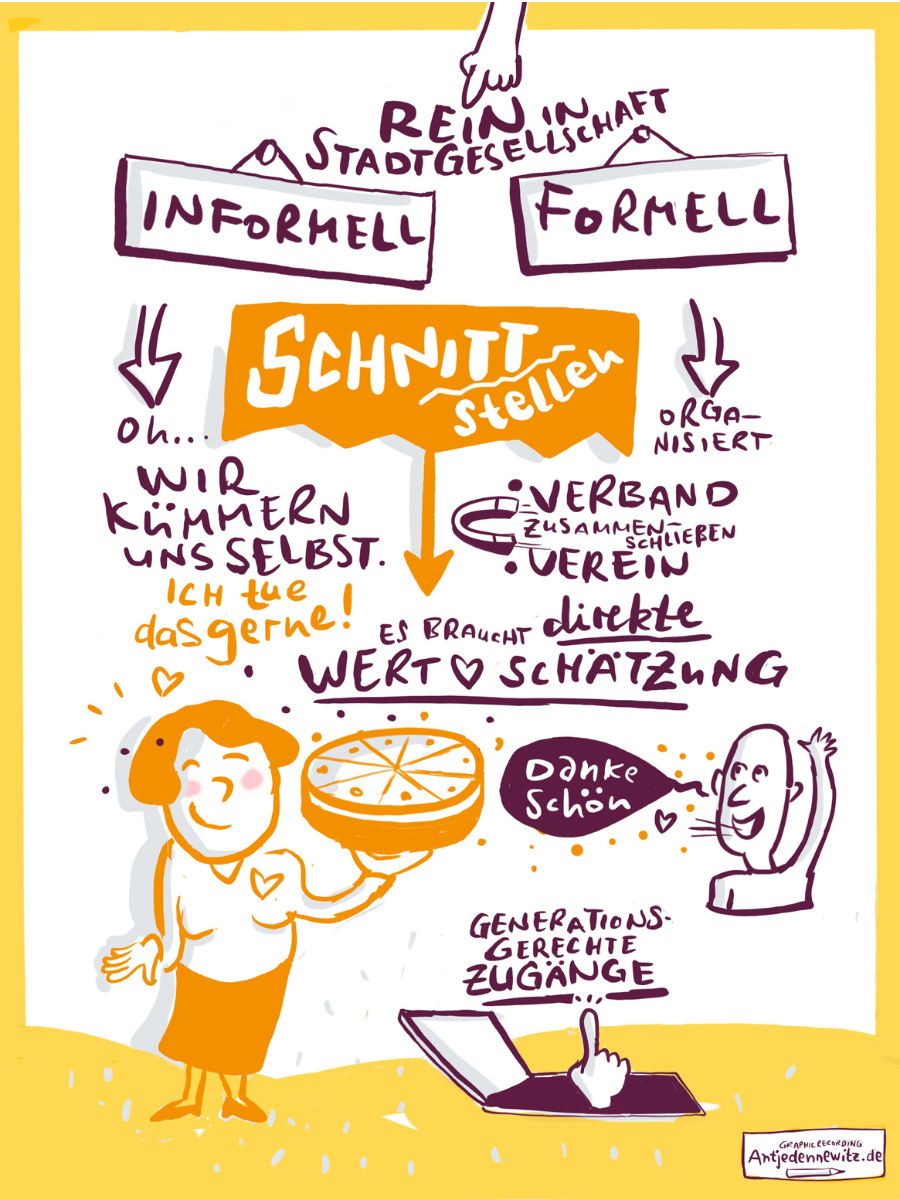 REIN IN
STADTGESELLSCHAFT
INFORMELL
FORMELL
SCHNITT
stellen
oh...
WIR
KÜMMERN
UNS SELBST.
ICH tue
das gerne!
ORGA-
NISIERT
• VERBAND
ZUSAMMEN-
SCHLIEẞEN
• VEREIN
ES BRAUCHT direkte
WERT SCHÄTZUNG
Danke
Schön
GENERATIONS-
GERECHTE
ZUGÄNGE
GRAPHICRECORDING
Antjedennewitz.de